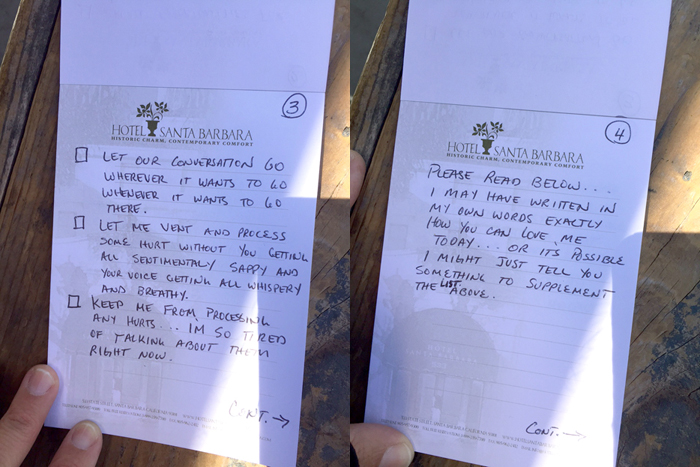 3
HOTEL SANTA BARBARA
HISTORIC CHARM, CONTEMPORARY COMFORT
LET OUR CONVERSATION GO
WHEREVER IT WANTS TO GO
WHENEVER IT WANTS TO GO
THERE.
LET ME VENT AND PROCESS
SOME HURT WITHOUT YOU GETTING
ALL SENTIMENTALY SAPPY AND
YOUR VOICE GETTING ALL WHISPERY
AND BREATHY.
KEEP ME FROM PROCESSING
ANY HURTS... IM SO TIRED
OF TALKING ABOUT THEM
RIGHT NOW.
CONT. →
4
HOTEL SANTA BARBARA
HISTORIC CHARM, CONTEMPORARY COMFORT
PLEASE READ BELOW...
I MAY HAVE WRITTEN IN
MY OWN WORDS EXACTLY
HOW YOU CAN LOVE ME
TODAY... OR ITS POSSIBLE
I MIGHT JUST TELL YOU
SOMETHING TO SUPPLEMENT
THE LIST ABOVE.
CONT. →